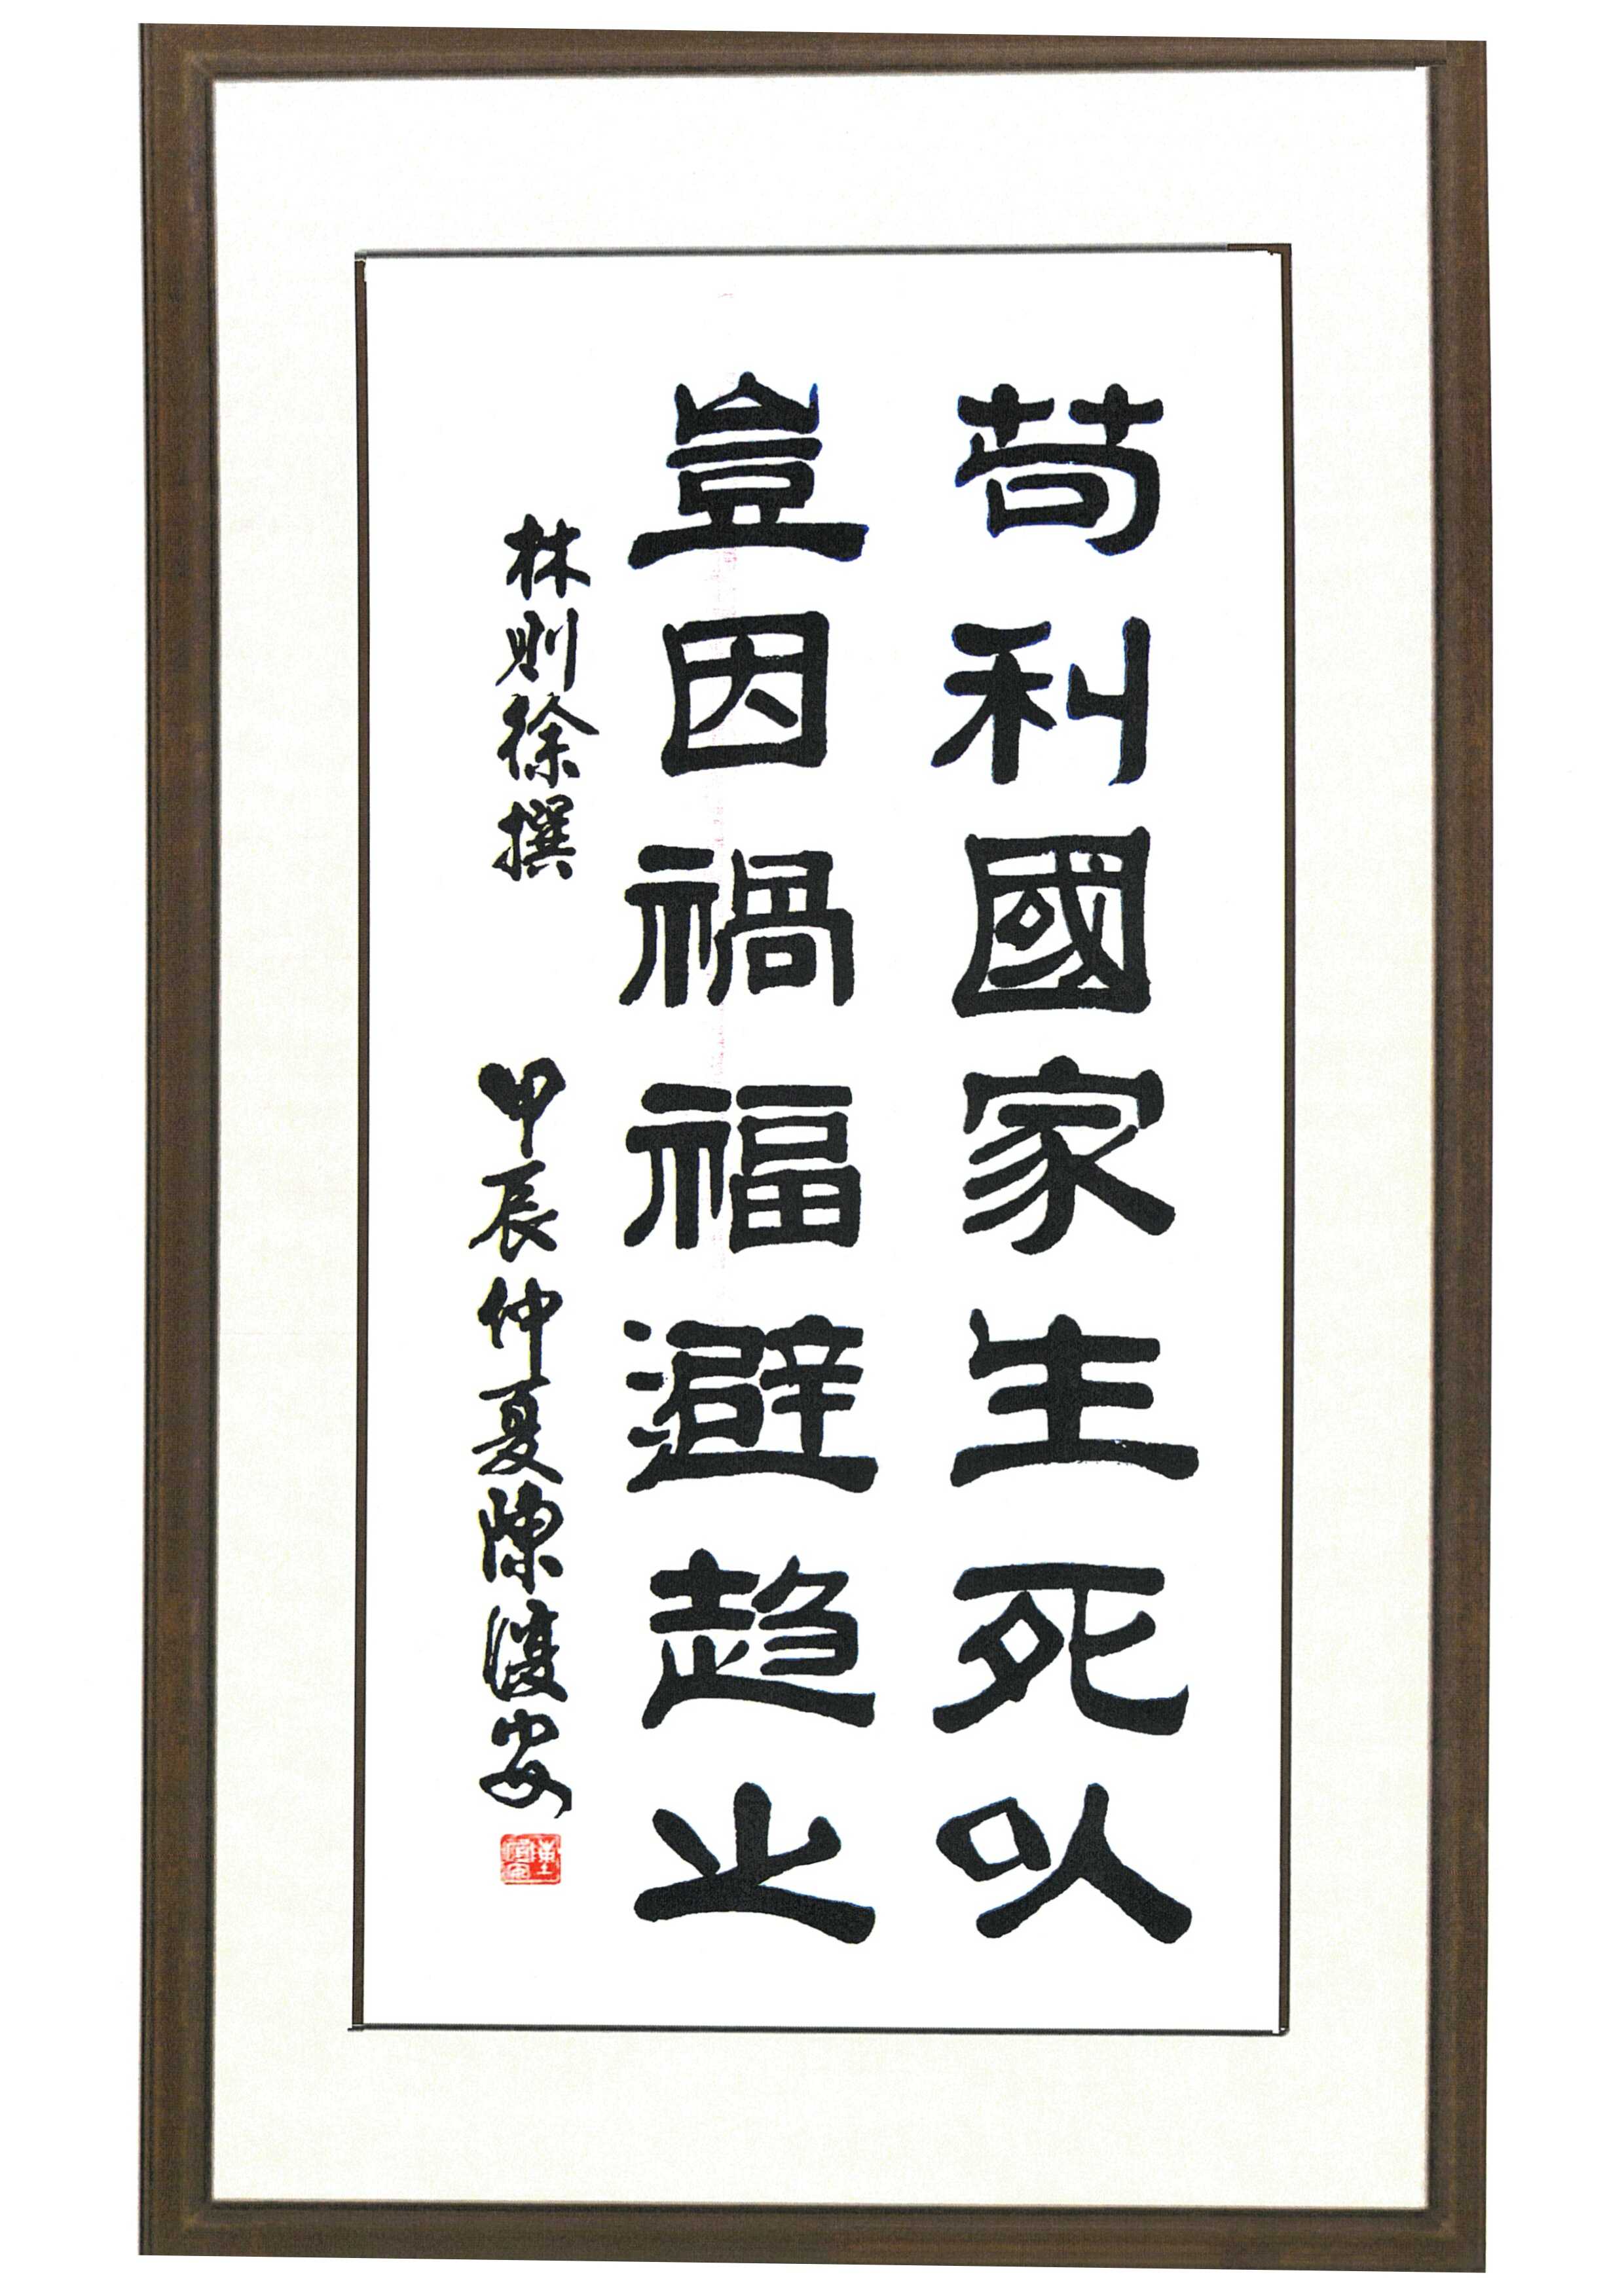 苟利國家生死以
豈因禍福避趨之
林則徐撰 甲辰仲夏陳渡安